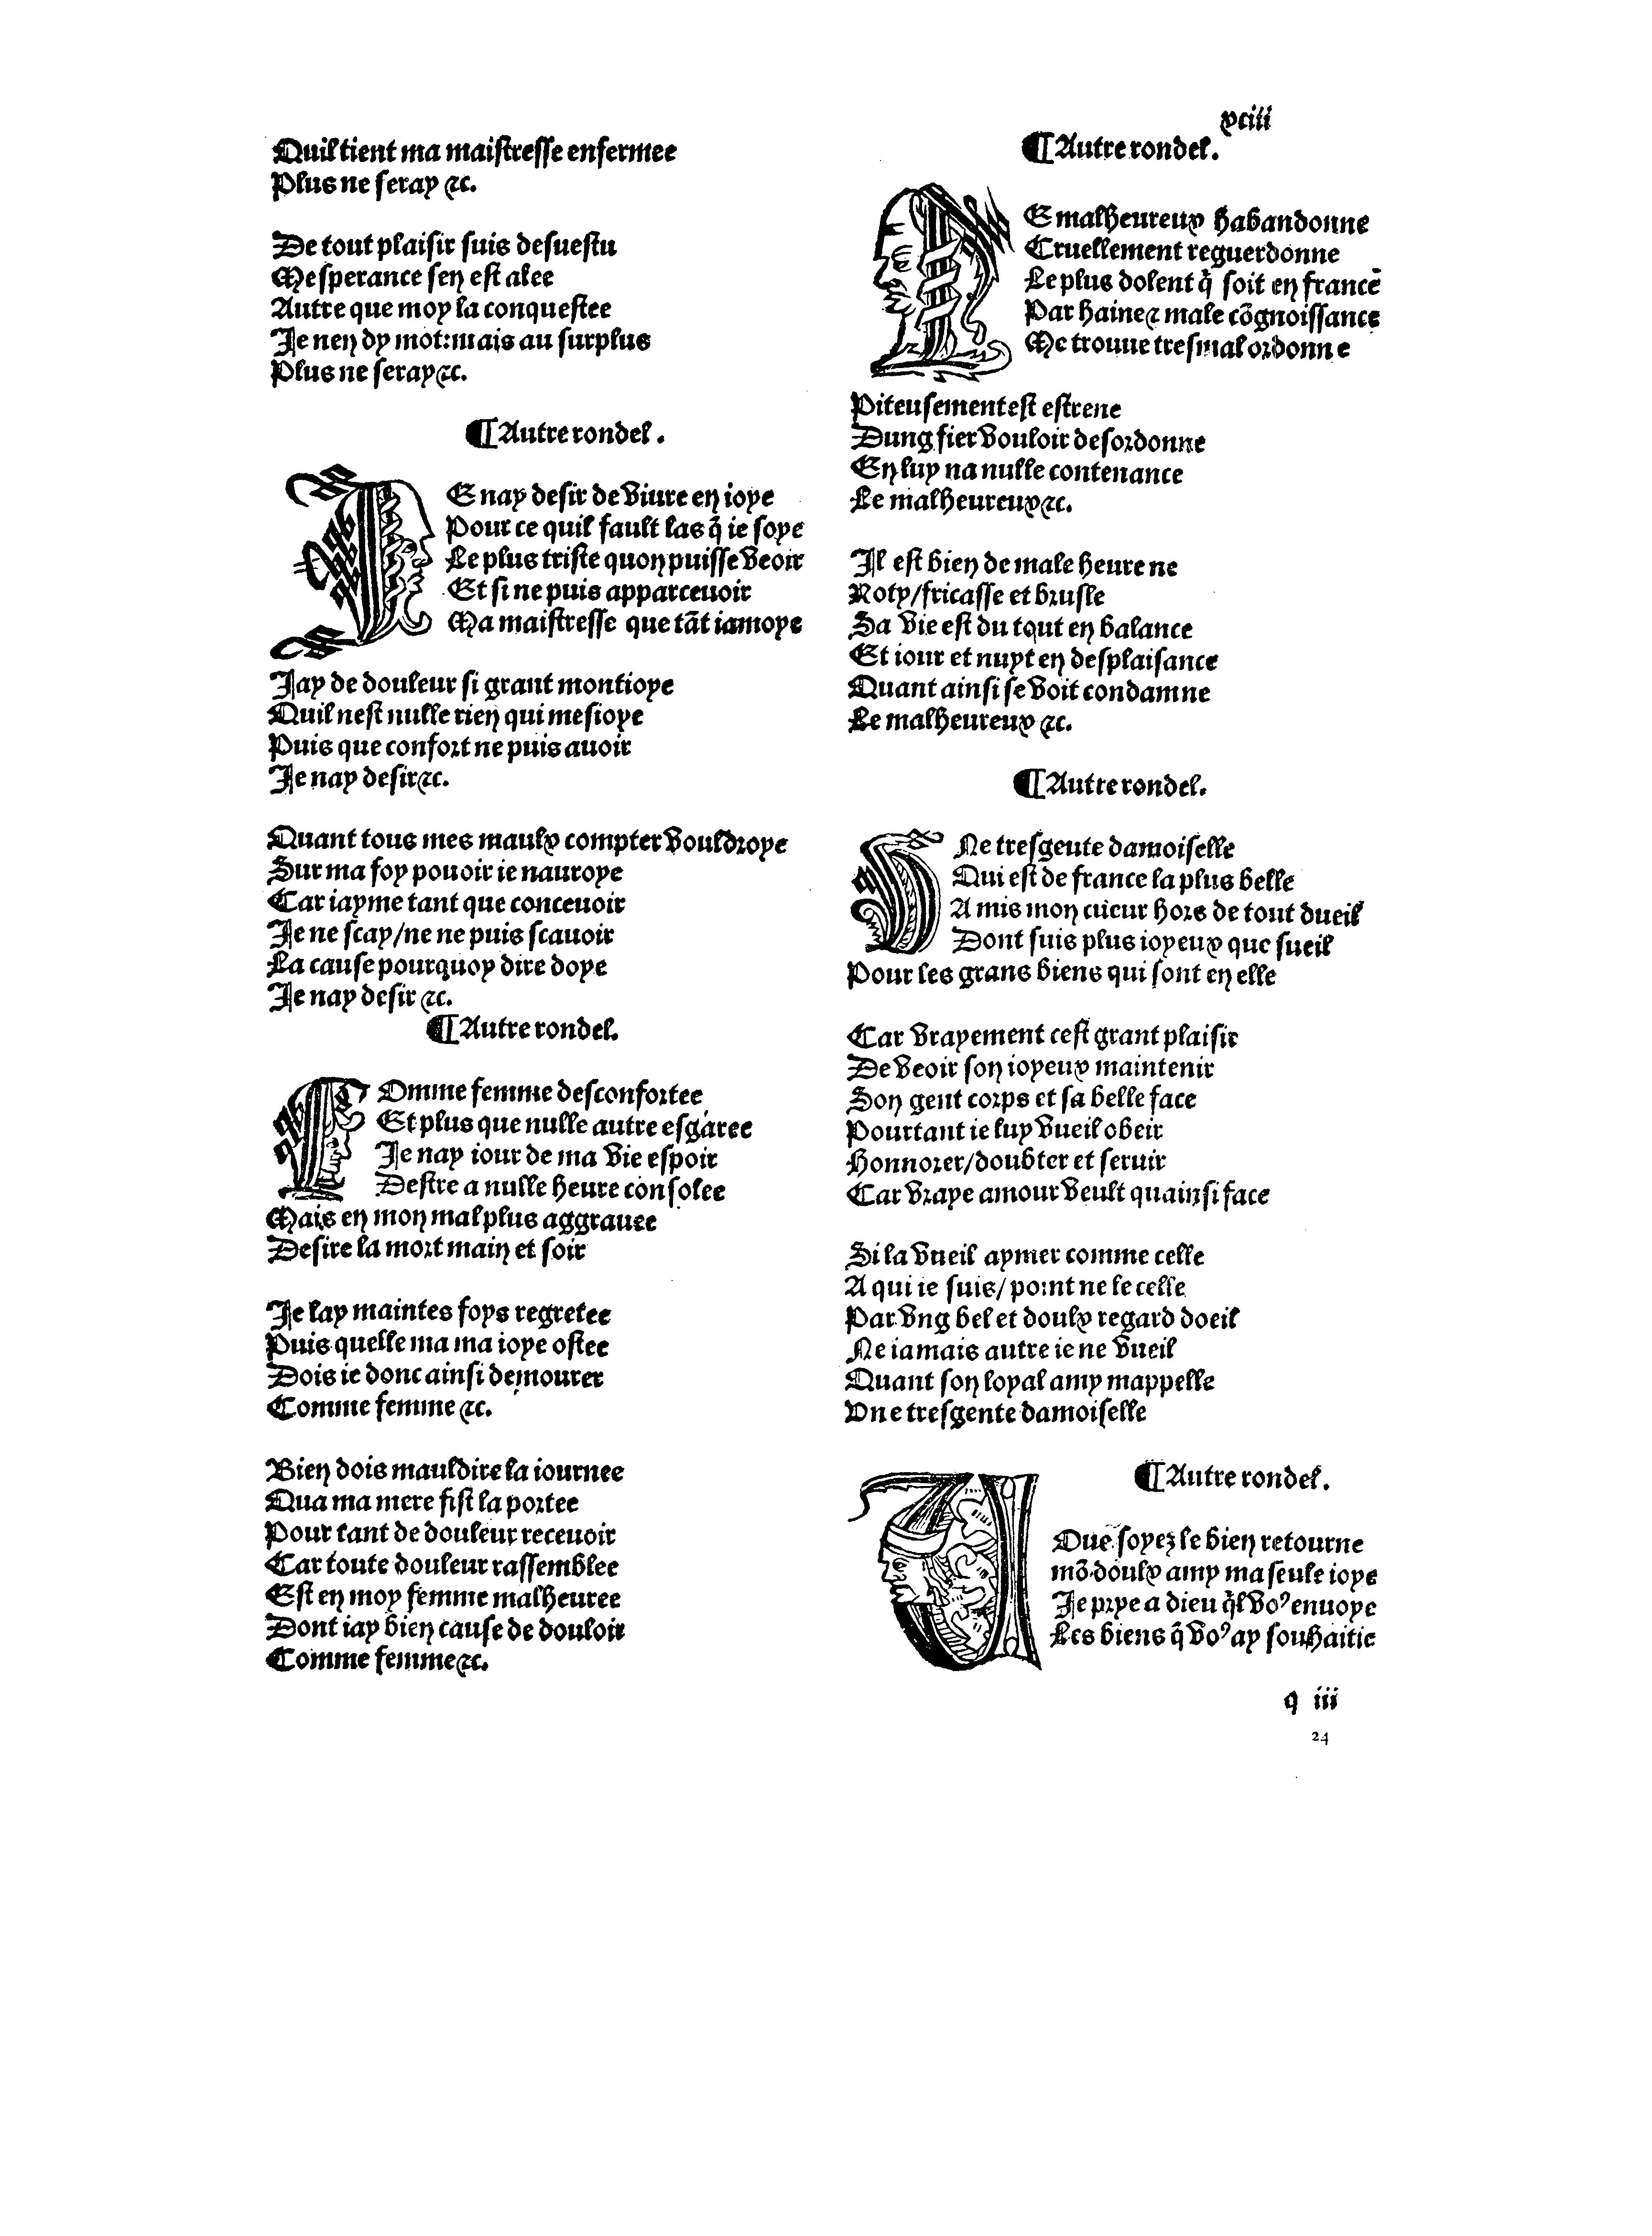 xciii
Quil tient ma maistresse enfermee
Plus ne seray ⁊c.
De tout plaisir suis desuestu
Mesperance sen est alee
Autre que moy la conquestee
Je nen dy mot:mais au surplus
Plus ne seray ⁊c.
¶ Autre rondel.
JE nay desir de viure en ioye
Pour ce quil fault las q̃ ie soye
Le plus triste quon puisse veoir
Et si ne puis apparceuoir
Ma maistresse que tãt iamoye
Jay de douleur si grant montioye
Quil nest nulle rien qui mesioye
Puis que confort ne puis auoir
Je nay desir ⁊c.
Quant tous mes maulx compter vouldroye
Sur ma foy pouoir ie nauroye
Car iayme tant que conceuoir
Je ne scay/ne ne puis scauoir
La cause pourquoy dire doye
Je nay desir ⁊c.
¶ Autre rondel.
COmme femme desconfortee
Et plus que nulle autre esgaree
Je nay iour de ma vie espoir
Destre a nulle heure consolee
Mais en mon mal plus aggrauee
Desire la mort main et soir
Je lay maintes foys regretee
Puis quelle ma ma ioye ostee
Dois ie donc ainsi demourer
Comme femme ⁊c.
Bien dois mauldire la iournee
Qua ma mere fist la portee
Pour tant de douleur receuoir
Car toute douleur rassemblee
Est en moy femme malheuree
Dont iay bien cause de douloir
Comme femme ⁊c.
¶ Autre rondel.
LE malheureux habandonne
Cruellement reguerdonne
Le plus dolent q̃ soit en france
Par haine ⁊ male cõgnoissance
Me trouue tresmal ordonne
Piteusement est estrene
Dung fier vouloir desordonne
En luy na nulle contenance
Le malheureux ⁊c.
Il est bien de male heure ne
Roty/fricasse et brusle
Sa vie est du tout en balance
Et iour et nuyt en desplaisance
Quant ainsi se voit condamne
Le malheureux ⁊c.
¶ Autre rondel.
VNe tresgente damoiselle
Qui est de france la plus belle
A mis mon cueur hors de tout dueil
Dont suis plus ioyeux que sueil
Pour les grans biens qui sont en elle
Car vrayement cest grant plaisir
De veoir son ioyeux maintenir
Son gent corps et sa belle face
Pourtant ie luy vueil obeir
Honnorer/doubter et seruir
Car vraye amour veult quainsi face
Si la vueil aymer comme celle
A qui ie suis/point ne le celle
Par vng bel et doulx regard doeil
Ne iamais autre ie ne vueil
Quant son loyal amy mappelle
Vne tresgente damoiselle
¶ Autre rondel.
VOue soyez le bien retourne
mõ doulx amy ma seule ioye
Je prye a dieu q̃l voꝰ enuoye
Les biens q̃ voꝰ ay souhaitie
q iii
24